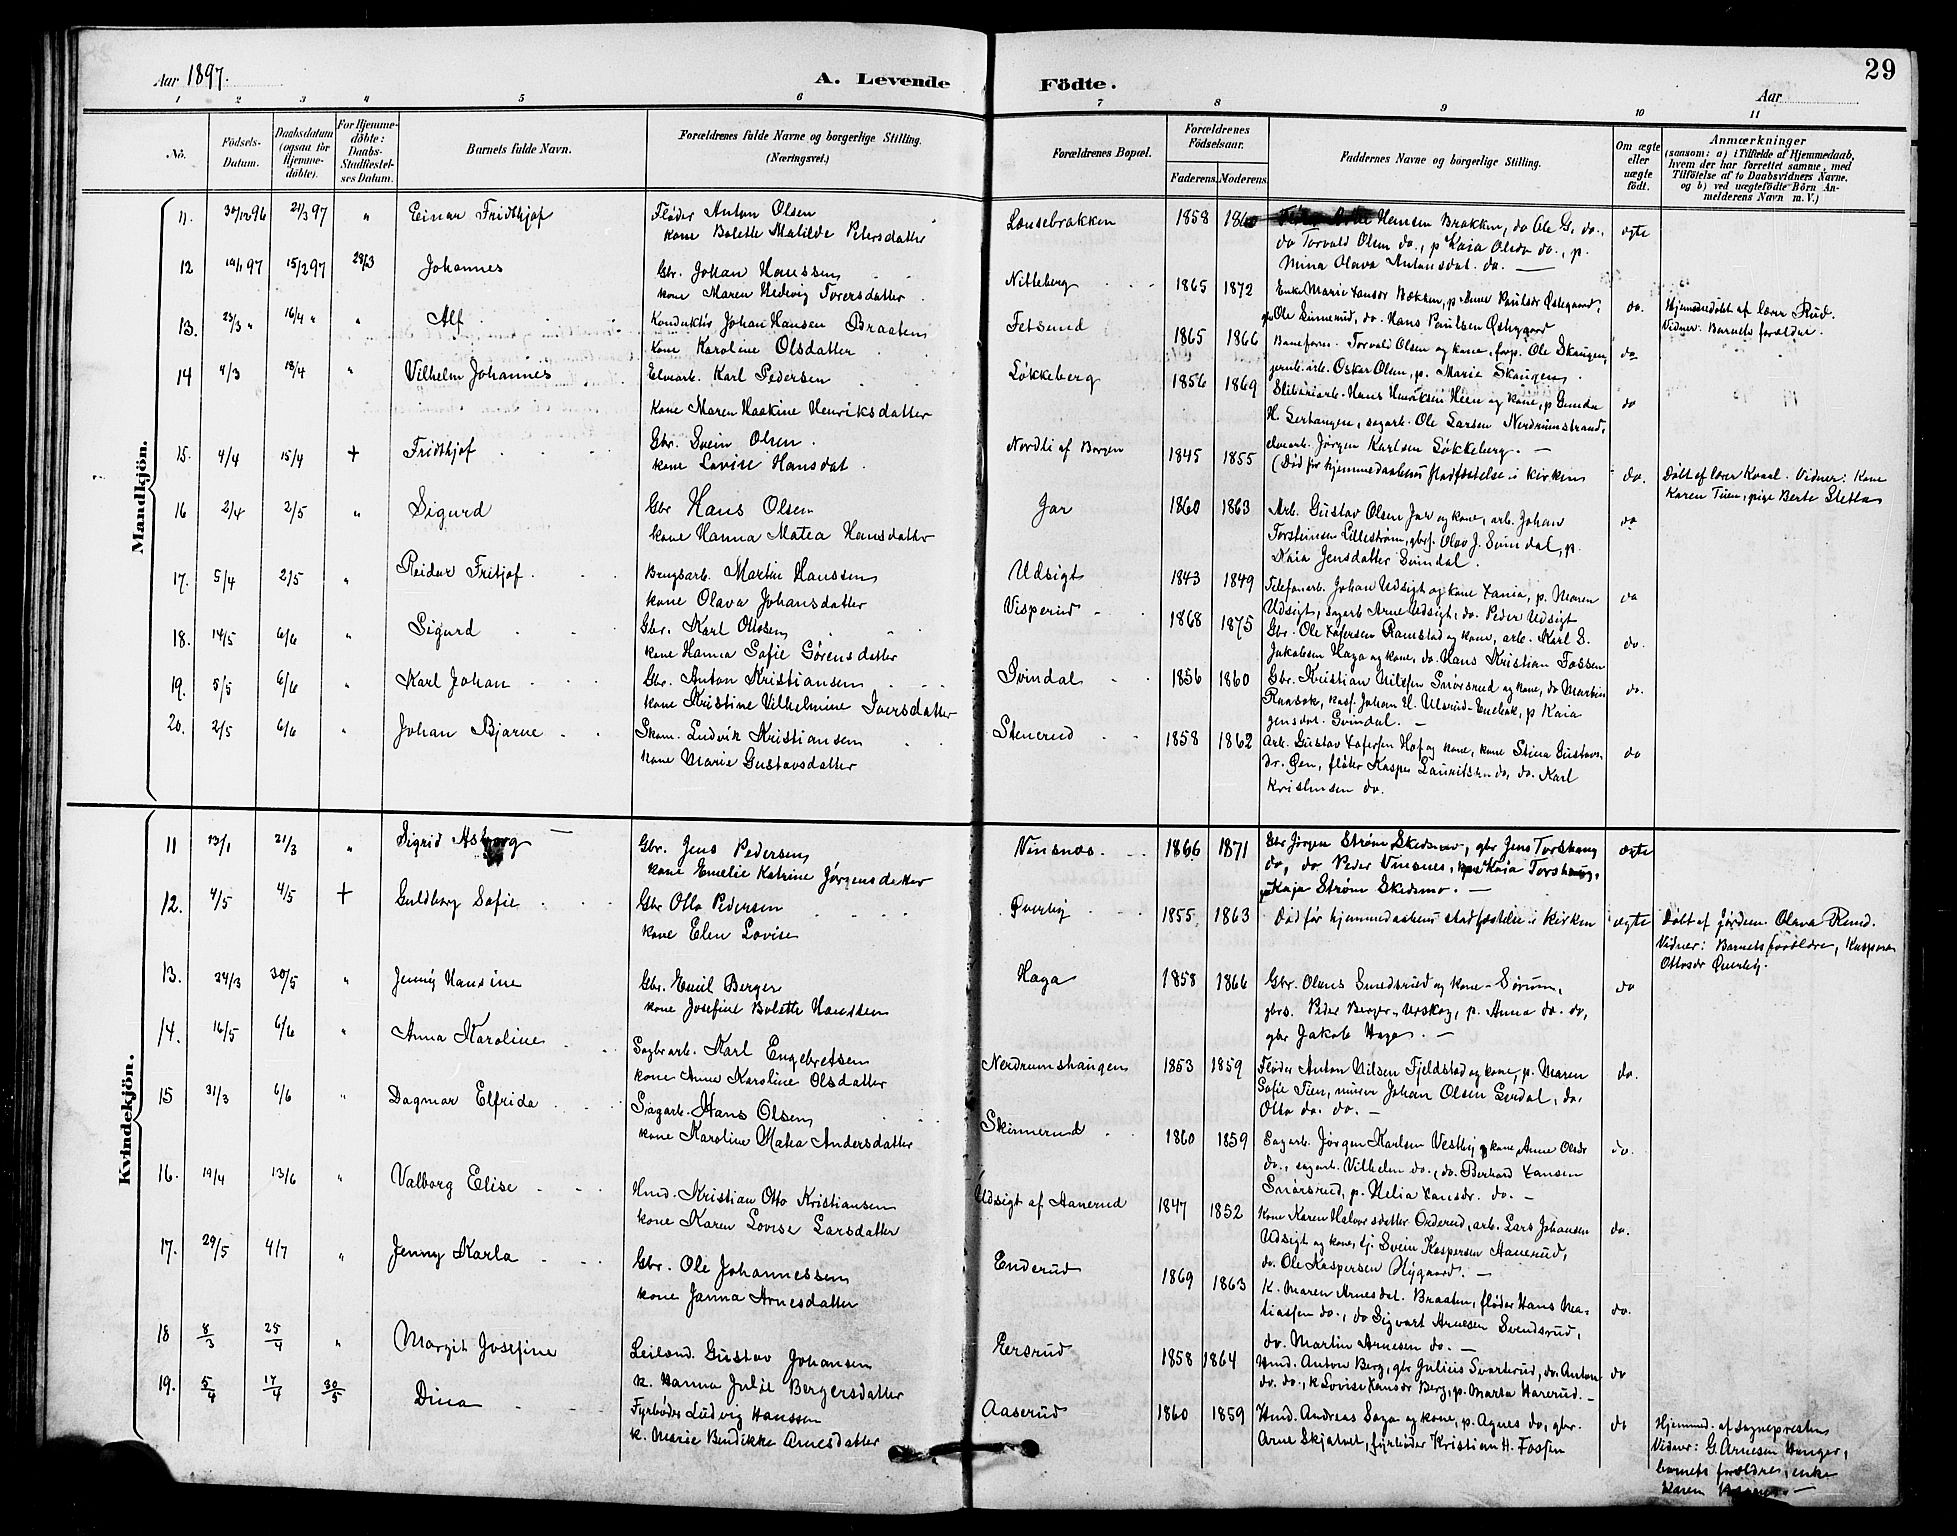 29
Aar 1897.
A. Levende Födte.
Aar
1 2 3 4 5 6 7 8 9 10 11
No.
Födsels-Datum.
Daabsdatum (ogsaa for Hjemme-döbte).
For Hjemme-döbte: Daabs-Stadfæstel-ses Datum.
Barnets fulde Navn.
Forældrenes fulde Navne og borgerlige Stilling. (Næringsvei.)
Forældrenes Bopæl.
Forældrenes Födselsaar.
Faderens. Moderens.
Faddernes Navne og borgerlige Stilling.
Om ægte eller uægte födt.
Anmærkninger
(saasom: a) i Tilfælde af Hjemmedaab, hvem der har forrettet samme, med Tilföielse af to Daabsvidners Navne. og b) ved uægtefödte Börn An-melderens Navn m. V.)
Mandkjön.
11. 30/12 96 21/3 97 " Einar Fridthjof
Fløder Anton Olsen
kone Bolette Matilde Petersdatter
Lønsebrakken 1858 1860
Hansen Brakken, do Ole G. do.,
do Torvald Olsen do., p Kaia Olsdr do., p.
Mina Olava Antonsdat. do. —
ægte
12 19/1 97 15/2 97 28/3 Johannes
Gbr. Johan Hanssen
kone Maren Hedevig Toversdatter
Nitteberg 1865 1872
Ole Linnerud, do. Hans Paulsen Østegaard
do.
Hjemmedøbt af lærer Rud.
Vidner: Barnets forældre.
13. 23/3 " 16/4 " " Alf
Konduktør Johan Hansen Braaten
kone Karoline Olsdatter
Fetsund 1865 1866
Baneform. Torvald Olsen og kone, Ole Skaugen,
jernb.arb. Oskar Olsen, p. Marie Skaugen.
do
14 4/3 18/4 " Vilhelm Johannes
Elvearb. Karl Pedersen
kone Maren Haakine Henriksdatter
Løkkeberg 1856 1869
Sliberiarb. Hans Henriksen Heen og kone, p Gunda
H. Lerhaugen, sagarb. Ole Larsen Nerdrumstrand,
elvearb. Jørgen Karlsen Løkkeberg. —
do
15. 4/4 15/4 + Fridthjof
Gbr. Svein Olsen.
kone Lovise Hansdat.
Nordli af Borgen 1845 1855
(Død før hjemmedaabens stadfæstelse i kirken
do.
Døbt af lærer Kvaal. Vidner: Kone
Karen Tuen, pige Berte Sletta
16 2/4 2/5 " Sigurd
Gbr Hans Olsen
kone Hanna Matea Hansdatter
Jar 1860 1863
Arb. Gustav Olsen Jar og kone, arb. Johan
Torsteinsen Lillestrøm, gbrs. Olav J. Svindal, p.
Kaia Jensdatter Svindal.
do
17. 5/4 2/5 " Reidar Fritjof
Brugsarb. Martin Hanssen
kone Olava Johansdatter
Udsigt 1843 1849
Telefonarb. Johan Udsigt og kone, p. Maren
Udsigt, sagarb Arne Udsigt, do. Peder Udsigt
do
18. 14/5 6/6 " Sigurd
Gbr. Karl Ottosen
kone Hanna Sofie Sørensdatter
Visperud 1868 1875
Gbr. Ole Ramstad og kone, arb. Karl S.
Jakobsen Haga og kone, do. Hans Kristian Fossen
do.
19. 5/5 6/6 " Karl Johan
Gbr. Anton Kristiansen
kone Kristine Vilhelmine Iversdatter
Svindal 1856 1860
Gbr. Kristian Nilssen Snørsrud og kone, do Martin
Raasok, Johan H. Ulsrud-Enebak, p Kaia
Jensdat. Svindal. —
do.
20. 2/5 6/6 " Johan Bjarne
Skom. Ludvik Kristiansen
kone Marie Gustavsdatter
Stenerud 1858 1862
Arb. Gustav Hof og kone, kone Stina Gustavs-
dr. Øen, fløter Kasper Lauritsen do, do. Karl
Kristensen do.
do
Kvindekjön.
11 13/1 21/3 " Sigrid Asborg
Gbr. Jens Pedersen
kone Emelie Katrine Jørgensdatter
Vinsnes 1866 1871
Gbr Jørgen Strøm Skedsmo, gbr Jens Torshaug
do, do Peder Vinsnes, Kaia Torshaug,
Kaja Strøm Skedsmo. —
ægte
12. 4/5 4/5 + Guldborg Sofie
Gbr Otto Pedersen
kone Elen Lovise
Øverby 1855 1863
Død før hjemmedaabens stadfæstelse i kirken
ægte
Døbt af jordem. Olava Rud.
Vidner: Barnets forældre, Kaspara
Ottosdr Øverby.
13. 24/3 30/5 " Jenny Hansine
Gbr. Emil Berger
kone Josefine Bolette Hanssen
Haga 1858 1866
Gbr. Olaus Smedsrud og kone - Sørum,
gbrs. Peder Berger - Urskog, p. Anna do. do,
gbr Jakob Haga. —
do
14. 16/5 6/6 " Anna Karoline
Sagbr.arb. Karl Engebretsen
kone Anne Karoline Olsdatter
Nerdrumshaugen 1853 1859
Fløder Anton Nilsen Fjeldstad og kone, p. Maren
Sofie Tien, murer Johan Olsen Lerdal, do.
Otto do. do. —
do.
15 31/3 6/6 " Dagmar Elfrida
Sagarb. Hans Olsen
kone Karoline Matea Andersdatter
Skinnerud 1860 1859
Sagarb. Jørgen Karlsen Vestby og kone, Anne Olsdr
do., sagarb. Vilhelm do., do. Berhard Hansen
Snørsrud, p. Helia Hansdr. do. —
do.
16. 19/4 13/6 " Valborg Elise
Hmd. Kristian Otto Kristiansen
kone Karen Lovise Larsdatter
Udsigt af Hanerud 1847 1852
Kone Karen Halvorsdatter Orderud, arb. Lars Johansen
Udsigt og kone, tj. Svein Kaspersen Hanerud,
do. Ole Kaspersen Nygaard. —
do.
17. 29/5 4/7 " Jenny Karla
Gbr. Ole Johannessen
kone Janna Arnesdatter
Enderud 1869 1863
K. Maren Arnesdat. Braaten, fløder Hans Ma-
tiassen do., do Sigvart Arnesen Svendsrud,
do. Martin Arnesen do. —
do.
18 8/3 25/4 " Margit Josefine
Leilænd. Gustav Johansen
k. Hanna Julie Bergersdatter
Eersrud 1858 1864
Hmd. Anton Berg, gbr Julius Svarterud, do. Anton
do. do., k Lovise Hansdr Berg, p. Marta Harerud. —
do
19. 5/4 17/4 30/5 Dina
Fyrbøder Ludvig Hanssen
k. Marie Bendikke Arnesdatter
Aaserud 1860 1859
Hmd. Andreas Saga og kone, p. Agnes do, gbr.
Arne Skjatvet, fyrbøder Kristian H. Fossen
do
Hjemmed. af sognepresten
Vidner: G. Arnesen Hanger,
barnets forældre, enke
Karen